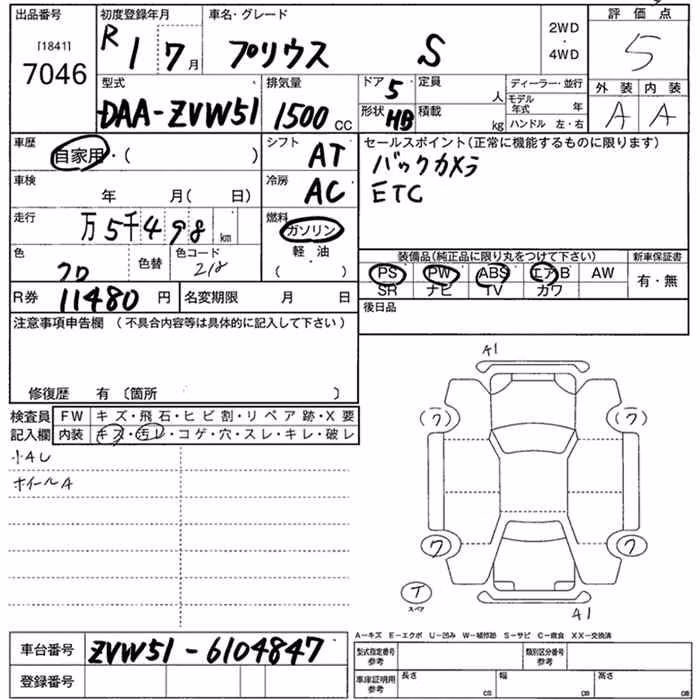 出品番号 初度登録年月 車名・グレード 評価点
[1841] 7046 R1 7月 プリウス S 2WD・4WD 5
型式 排気量 ドア 5 定員 人 ディーラー・並行 外装 内装
DAA-ZVW51 1500 CC 形状 HB 積載 kg モデル年式 年 ハンドル 左・右 A A
車歴 自家用・( ) シフト AT セールスポイント(正常に機能するものに限ります)
バックカメラ
車検 年 月( 日) 冷房 AC ETC
走行 万5千498km 燃料 ガソリン
軽油
( )
色 色替 色コード 218
装備品(純正品に限り丸をつけて下さい) 新車保証書
PS PW ABS エアB AW 有・無
SR ナビ TV カワ
R券 11480円 名変期限 月 日 後日品
注意事項申告欄 (不具合内容等は具体的に記入して下さい)
修復歴 有 〔箇所 〕
検査員記入欄 FW キズ・飛石・ヒビ割・リペア跡・X要
内装 キズ・汚レ・コゲ・穴・スレ・キレ・破レ
小AU
ホイールA
A1
(ワ) (ワ)
ワ ワ
T
スペア
A1
A−キズ E−エクボ U−凹み W−補修跡 S−サビ C−腐食 XX−交換済
車台番号 ZVW51-6104847 型式指定番号 参考 類別区分番号 参考
登録番号 車庫証明用 参考 長さ CB 幅 CB 高さ CB